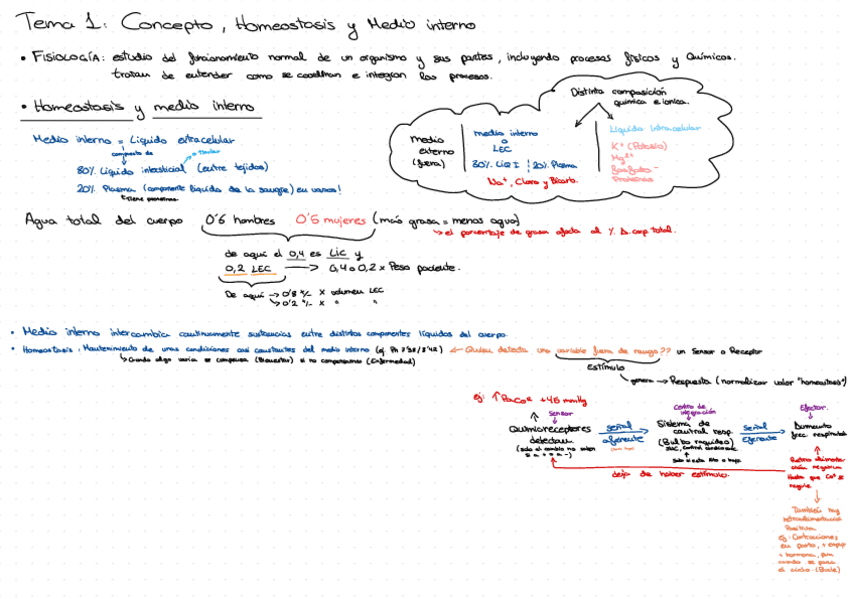 Tema 1: Concepto, Homeostasis y Medio interno
• FISIOLOGÍA: estudio del funcionamiento normal de un organismo y sus partes, incluyendo procesos físicos y químicos.
tratan de entender como se coordinan e integran los procesos.
• Homeostasis y medio interno
Medio interno = Líquido extracelular
compuesto de
80% Líquido intersticial (entre tejidos)
20% Plasma (componente líquido de la sangre) en vasos!
Tiene proteínas
Distinta composición
química e iónica.
medio
externo
(fuera)
medio interno
o
LEC
80% LIQ I | 20% Plasma
Na+, Cloro y Bicarb.
Líquido intracelular
K+ (Potasio)
Mg2+
Fosfatos-
Proteínas
Agua total del cuerpo 0'6 hombres 0'5 mujeres (más grasa = menos agua)
↳ el porcentaje de grasa afecta al % total.
de aquí el 0,4 es LIC y
0,2 LEC → 0,4 o 0,2 x Peso paciente.
De aquí → 0'8 x volumen LEC
↳ 0'2 x " "
• Medio interno intercambia continuamente sustancias entre distintos componentes líquidos del cuerpo.
• Homeostasis: Mantenimiento de unas condiciones casi constantes del medio interno (ej. Ph 7'38/7'42) ← Quien detecta una variable fuera de rango?? un Sensor o Receptor
↳ Cuando algo varía se compensa (Bienestar) si no compensamos (Enfermedad)
estímulo
genera → Respuesta (normalizar valor "homeostasis")
ej: ↑ PaCO2 +45 mmHg
Sensor
Quimiorreceptores
detectan
señal
aferente
Centro de
integración
Sistema de
control resp.
(Bulbo raquídeo)
señal
Eferente
Efector.
Aumento
frec. respiratoria
deja de haber estímulo.
Retroalimentación
negativa
Hasta que se
regule
También hay
retroalimentación
Positiva
ej: Contracciones
en parto, + empuje
+ hormona, fin
cuando se para
el ciclo. (Bucle)